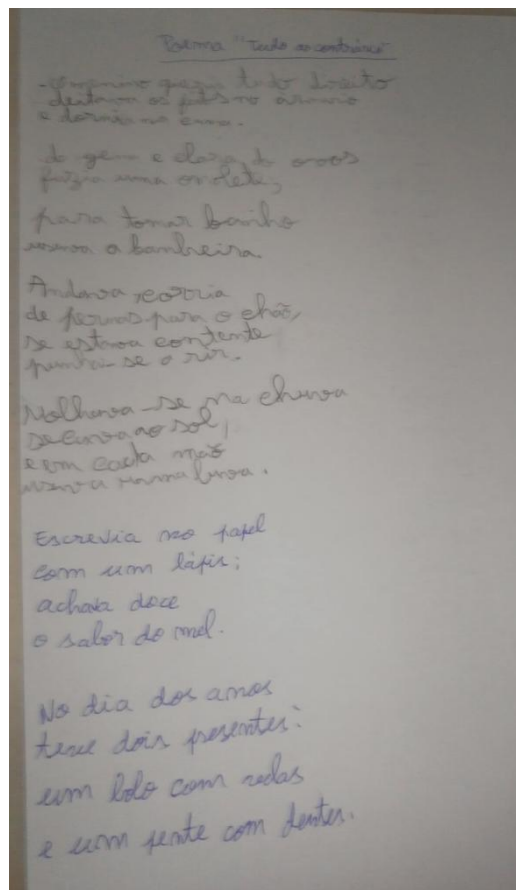 Poema "Tudo ao contrário"
O menino fazia tudo direito
deitava os pés no
e dormia na cama.
da gema e clara de ovos
fazia uma omolete,
para tomar banho
usava a banheira.
Andava, corria
de pernas para o chão,
se estava contente
punha-se a rir.
Molhava-se na chuva
secava ao sol,
e em cada mão
usava uma luva.
Escrevia no papel
com um lápis;
achava doce
o sabor do mel.
No dia dos anos
teve dois presentes:
um bolo com
e um pente com dentes.